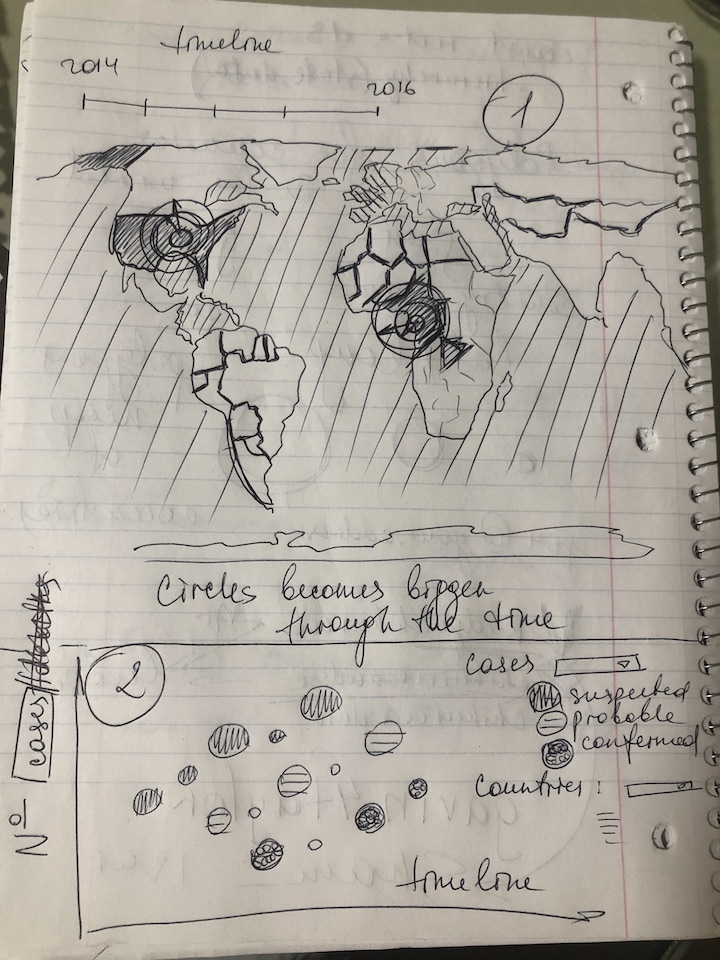 timeline
2014
2016
1
Circles becomes bigger
through the time
2
cases
suspected
probable
confermed
countries:
Nº cases
timeline